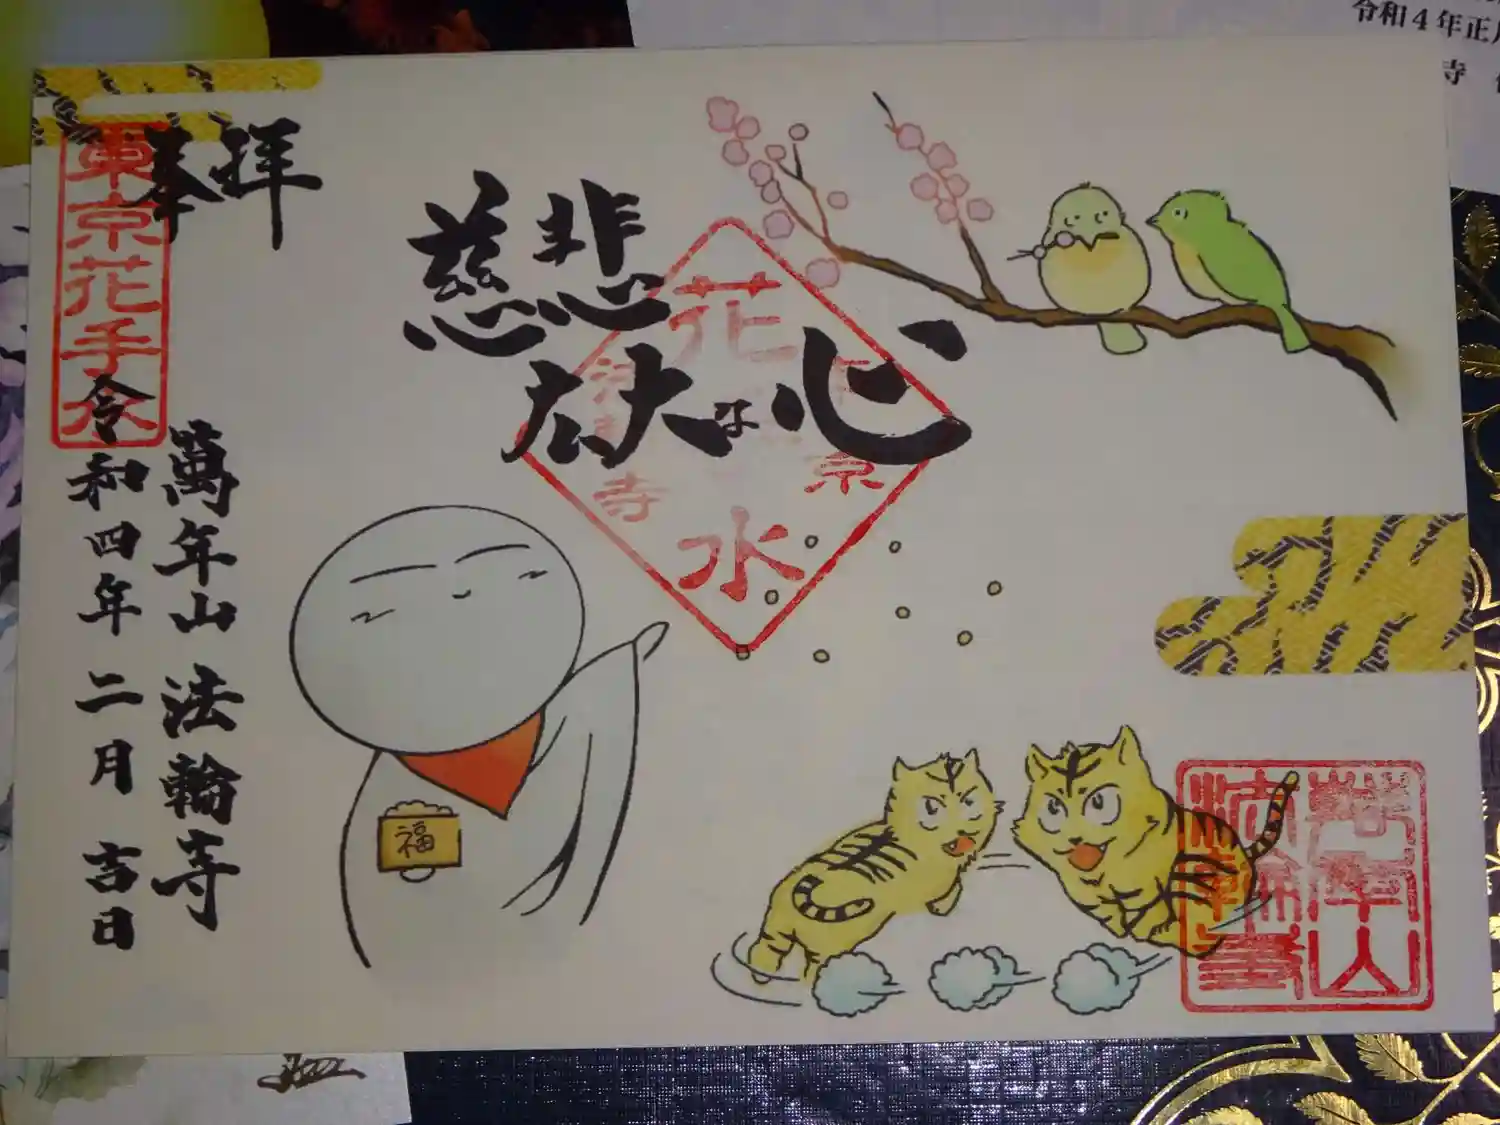 令和４年正月
寺
奉拝
東京花手水
慈悲
広大な心
花
水
東京
法輪寺
萬年山 法輪寺
令和四年 二月 吉日
福
萬年山
法輪寺